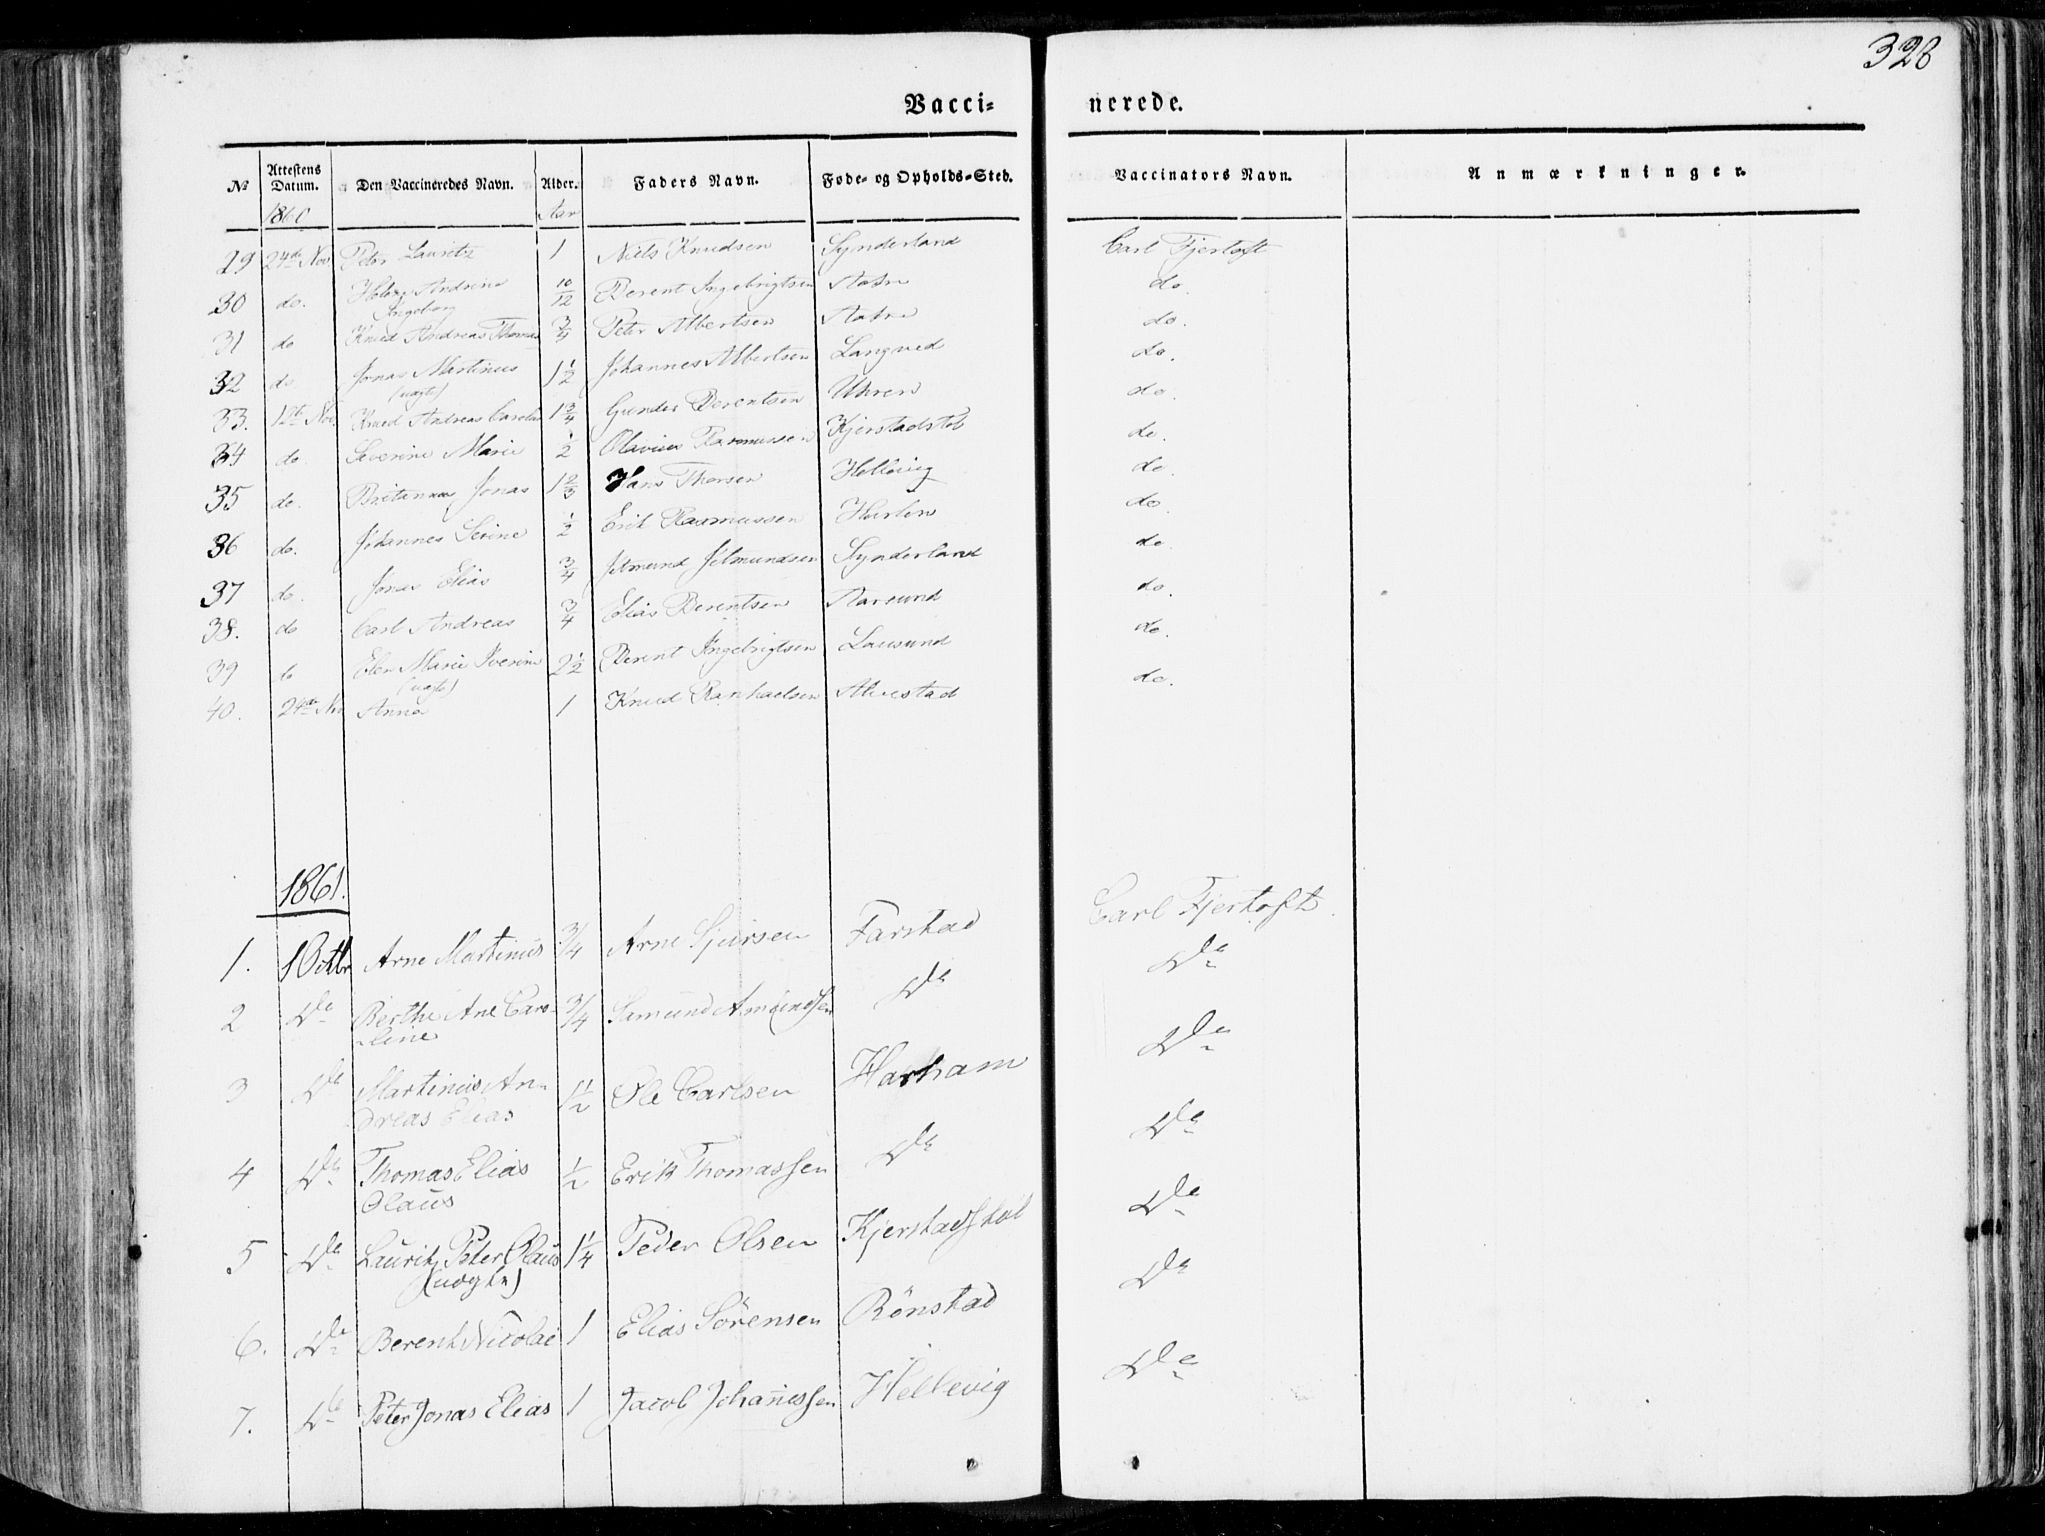 328
Vacci= nerede.
No Attestens Datum. Den Vaccineredes Navn. Alder. Faders Navn. Føde= og Opholds=Sted. Vaccinators Navn. Anmærkninger.
1860 Aar
29 24de Nov Peter Lauritz 1 Niels Knudsen Synderland Carl Fjertoft
30 do. Andrine Ingeborg 10/12 Berent Ingebrigtsen do.
31 do Knud Andreas Thomas 3/4 Peter Albertsen do.
32 do Jonas Martinus (uægte) 1 1/2 Johannes Albertsen Langved do.
33. Nov Knud Andreas 1 3/4 Gunder Berentsen Uhren do.
34 do. Severine Marie 1/2 Olavius Rasmussen Kjerstadstøl do.
35 do. Jonas 1 2/3 Hans Thorsen Hellevig do
36 do. Johannes Serine 1/2 Erik Rasmussen do.
37 do. Jonas Elias 3/4 Synderland do
38. do Carl Andreas 3/4 Elias Berentsen do.
39 Elen Marie Iverine (uægte) 2 1/2 Berent Ingebrigtsen Lausund do.
40. 24de Nov Anna 1 Knud Alvestad do.
1861.
1. 1 Octbr Arne Martinus 3/4 Arne Sjursen Farstad Carl Fjertoft
2 Do Berthe Ane Caro- 3/4 Samund Amundsen Do Do
line
3 Do Martinus An- 1 1/2 Ole Carlsen Harham Do
dreas Elias
4 Do Thomas Elias 1/2 Erik Thomassen Do Do
Olaus
5 Do Laurits Peter Olaus 1 1/4 Peder Olsen Kjerstadstøl Do
(uægte)
6. Do Berent Nicolai 1 Elias Sørensen Rönstad Do
7. Do Peter Jonas Elias 1 Jacob Johanessen Hellevig Do